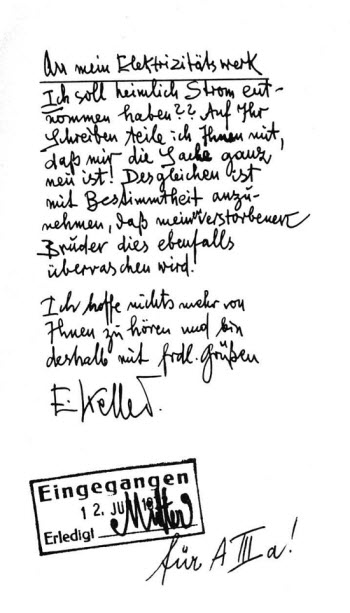 An mein Elektrizitätswerk
Ich soll heimlich Strom ent-
nommen haben?? Auf Ihr
Schreiben teile ich Ihnen mit,
daß mir die Sache ganz
neu ist! Desgleichen ist
mit Bestimmtheit anzu-
nehmen, daß mein verstorbener
Bruder dies ebenfalls
überraschen wird!
Ich hoffe nichts mehr von
Ihnen zu hören und bin
deshalb mit frdl. Grüßen
E. Keller.
Eingegangen
12. JU
Erledigt
für A III a!